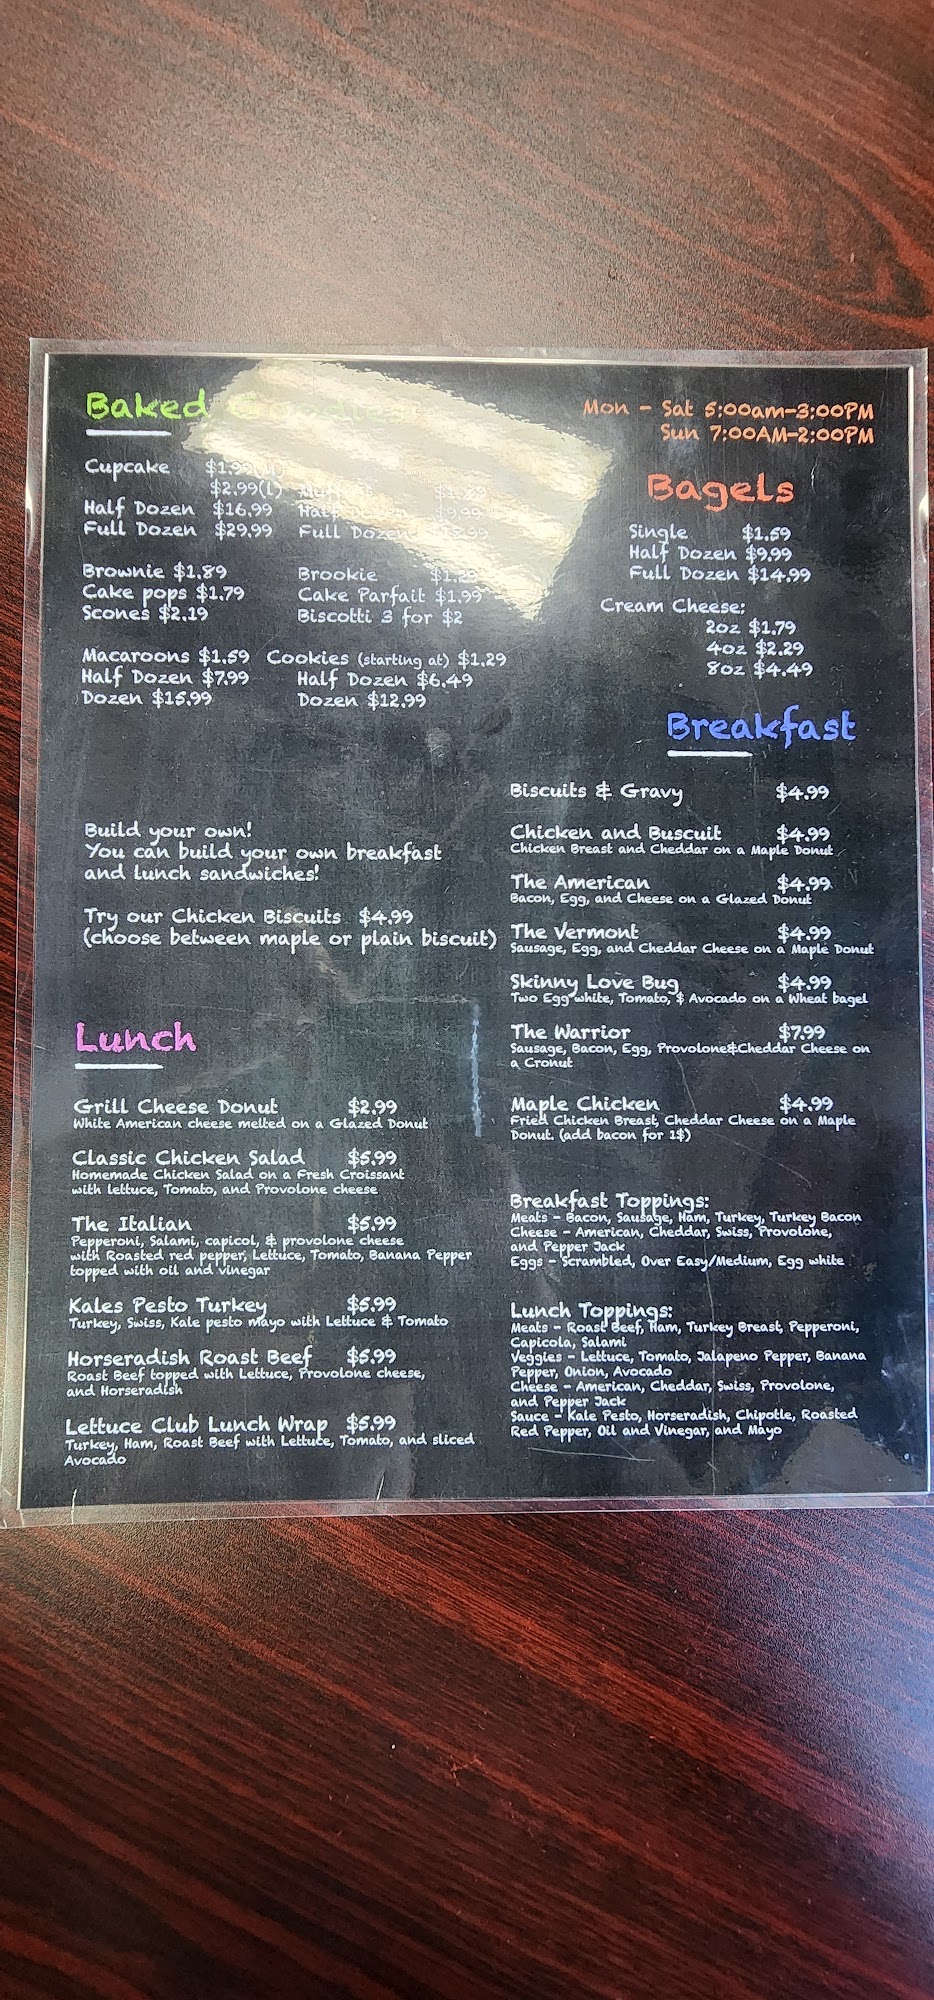 Baked
Cupcake $1.99
$2.99(l) Muffins $1.89
Half Dozen $16.99 Half Dozen $9.99
Full Dozen $29.99 Full Dozen
Brownie $1.89 Brookie $1.29
Cake pops $1.79 Cake Parfait $1.99
Scones $2.19 Biscotti 3 for $2
Macaroons $1.59 Cookies (starting at) $1.29
Half Dozen $7.99 Half Dozen $6.49
Dozen $15.99 Dozen $12.99
Mon - Sat 5:00am-3:00PM
Sun 7:00AM-2:00PM
Bagels
Single $1.59
Half Dozen $9.99
Full Dozen $14.99
Cream Cheese:
2oz $1.79
4oz $2.29
8oz $4.49
Build your own!
You can build your own breakfast
and lunch sandwiches!
Try our Chicken Biscuits $4.99
(choose between maple or plain biscuit)
Breakfast
Biscuits & Gravy $4.99
Chicken and Buscuit $4.99
Chicken Breast and Cheddar on a Maple Donut
The American $4.99
Bacon, Egg, and Cheese on a Glazed Donut
The Vermont $4.99
Sausage, Egg, and Cheddar Cheese on a Maple Donut
Skinny Love Bug $4.99
Two Egg white, Tomato, & Avocado on a Wheat bagel
The Warrior $7.99
Sausage, Bacon, Egg, Provolone&Cheddar Cheese on
a Cronut
Maple Chicken $4.99
Fried Chicken Breast, Cheddar Cheese on a Maple
Donut. (add bacon for 1$)
Breakfast Toppings:
Meats - Bacon, Sausage, Ham, Turkey, Turkey Bacon
Cheese - American, Cheddar, Swiss, Provolone,
and Pepper Jack
Eggs - Scrambled, Over Easy/Medium, Egg white
Lunch Toppings:
Meats - Roast Beef, Ham, Turkey Breast, Pepperoni,
Capicola, Salami
Veggies - Lettuce, Tomato, Jalapeno Pepper, Banana
Pepper, Onion, Avocado
Cheese - American, Cheddar, Swiss, Provolone,
and Pepper Jack
Sauce - Kale Pesto, Horseradish, Chipotle, Roasted
Red Pepper, Oil and Vinegar, and Mayo
Lunch
Grill Cheese Donut $2.99
White American cheese melted on a Glazed Donut
Classic Chicken Salad $5.99
Homemade Chicken Salad on a Fresh Croissant
with lettuce, Tomato, and Provolone cheese
The Italian $5.99
Pepperoni, Salami, capicol, & provolone cheese
with Roasted red pepper, Lettuce, Tomato, Banana Pepper
topped with oil and vinegar
Kales Pesto Turkey $5.99
Turkey, Swiss, Kale pesto mayo with Lettuce & Tomato
Horseradish Roast Beef $5.99
Roast Beef topped with Lettuce, Provolone cheese,
and Horseradish
Lettuce Club Lunch Wrap $5.99
Turkey, Ham, Roast Beef with Lettuce, Tomato, and sliced
Avocado